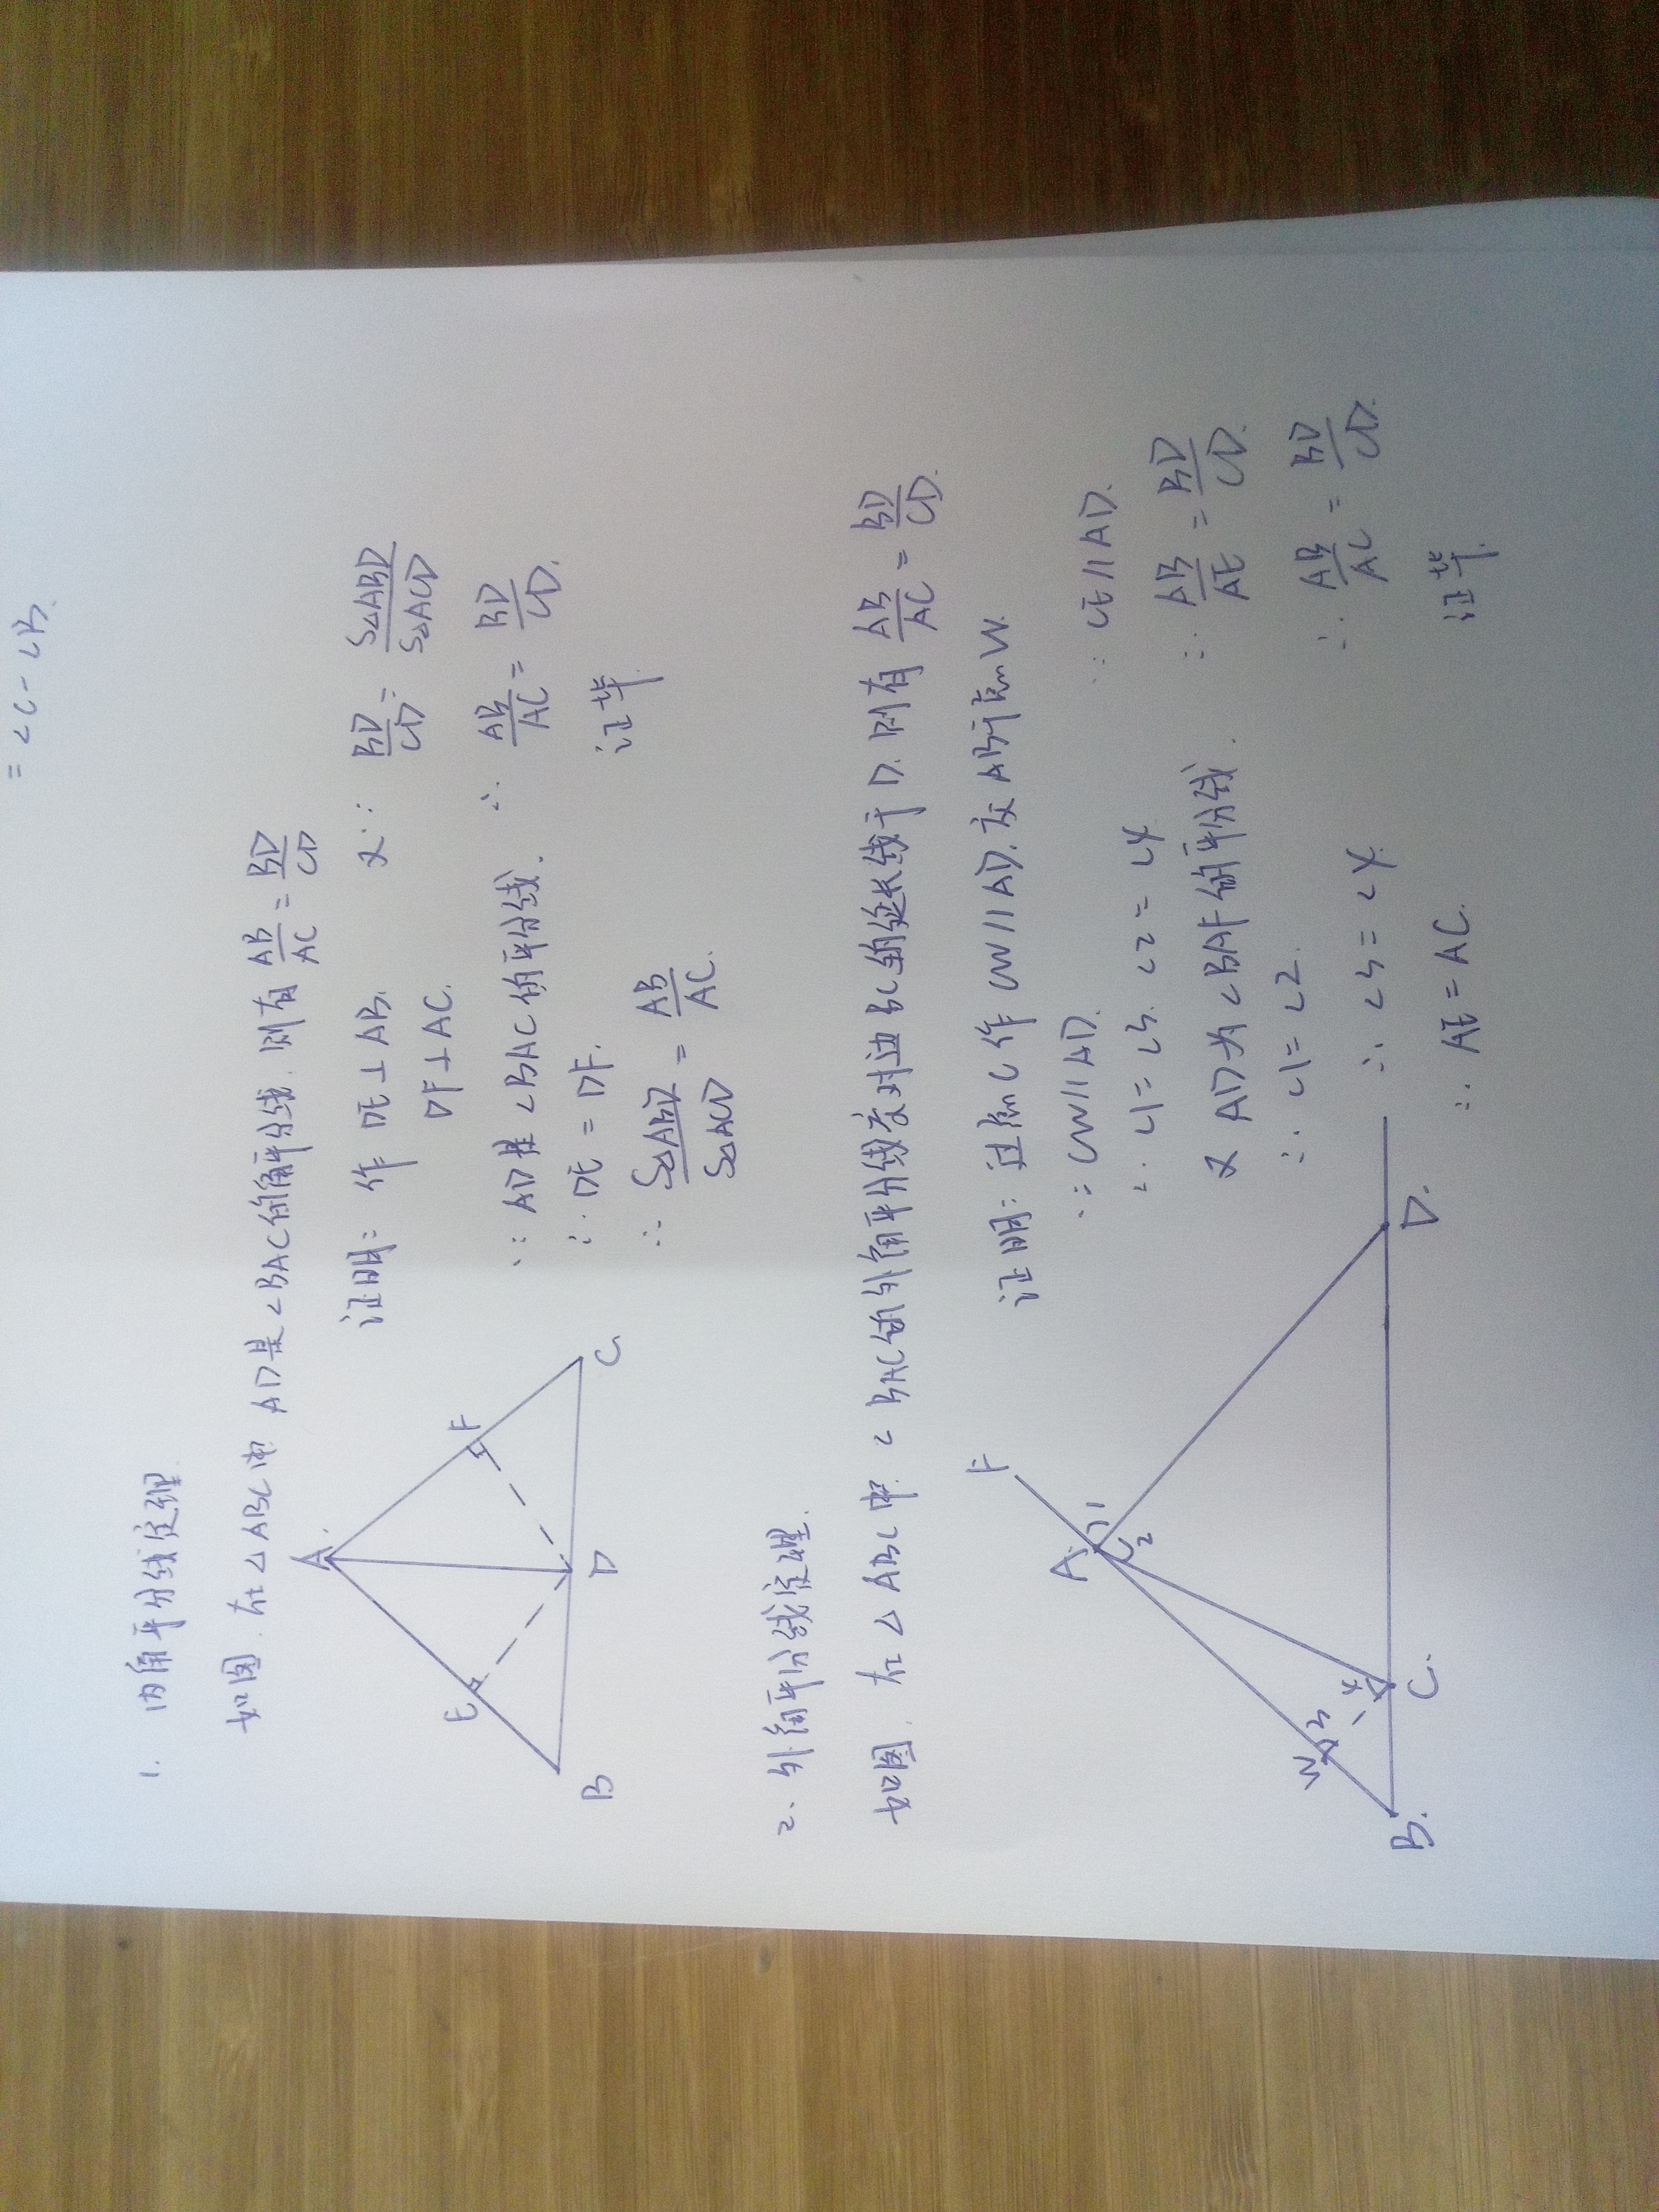 = ∠C - ∠B.
1. 内角平分线定理
如图. 在△ABC中 AD是∠BAC的角平分线. 则有 AB/AC = BD/CD
证明: 作 DE⊥AB.
DF⊥AC.
∵ AD是∠BAC的平分线.
∴ DE = DF.
∴ S△ABD/S△ACD = AB/AC.
又∵ BD/CD = S△ABD/S△ACD
∴ AB/AC = BD/CD.
证毕
A
E
F
B
D
C
2. 外角平分线定理.
如图. 在△ABC中. ∠BAC的外角平分线交对边BC的延长线于D. 则有 AB/AC = BD/CD.
证明: 过点C作CW//AD. 交AB于点W.
∵ CW//AD.
∴ ∠1=∠3. ∠2=∠4
又 AD为∠BAF的平分线.
∴ ∠1=∠2.
∴ ∠3=∠4.
∴ AE=AC.
∵ CE//AD.
∴ AB/AE = BD/CD.
∴ AB/AC = BD/CD.
证毕.
F
A
1
2
W
3
4
B.
C.
D.